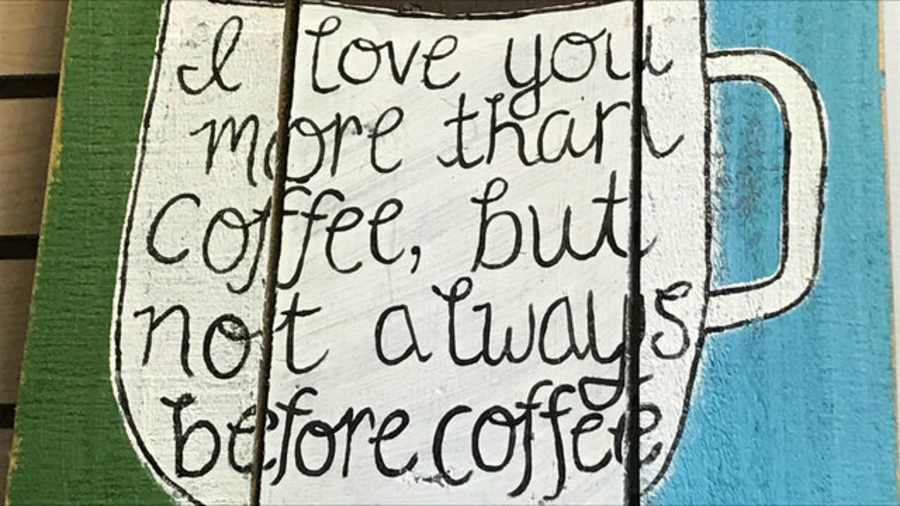 I love you
more than
coffee, but
not always
before coffee